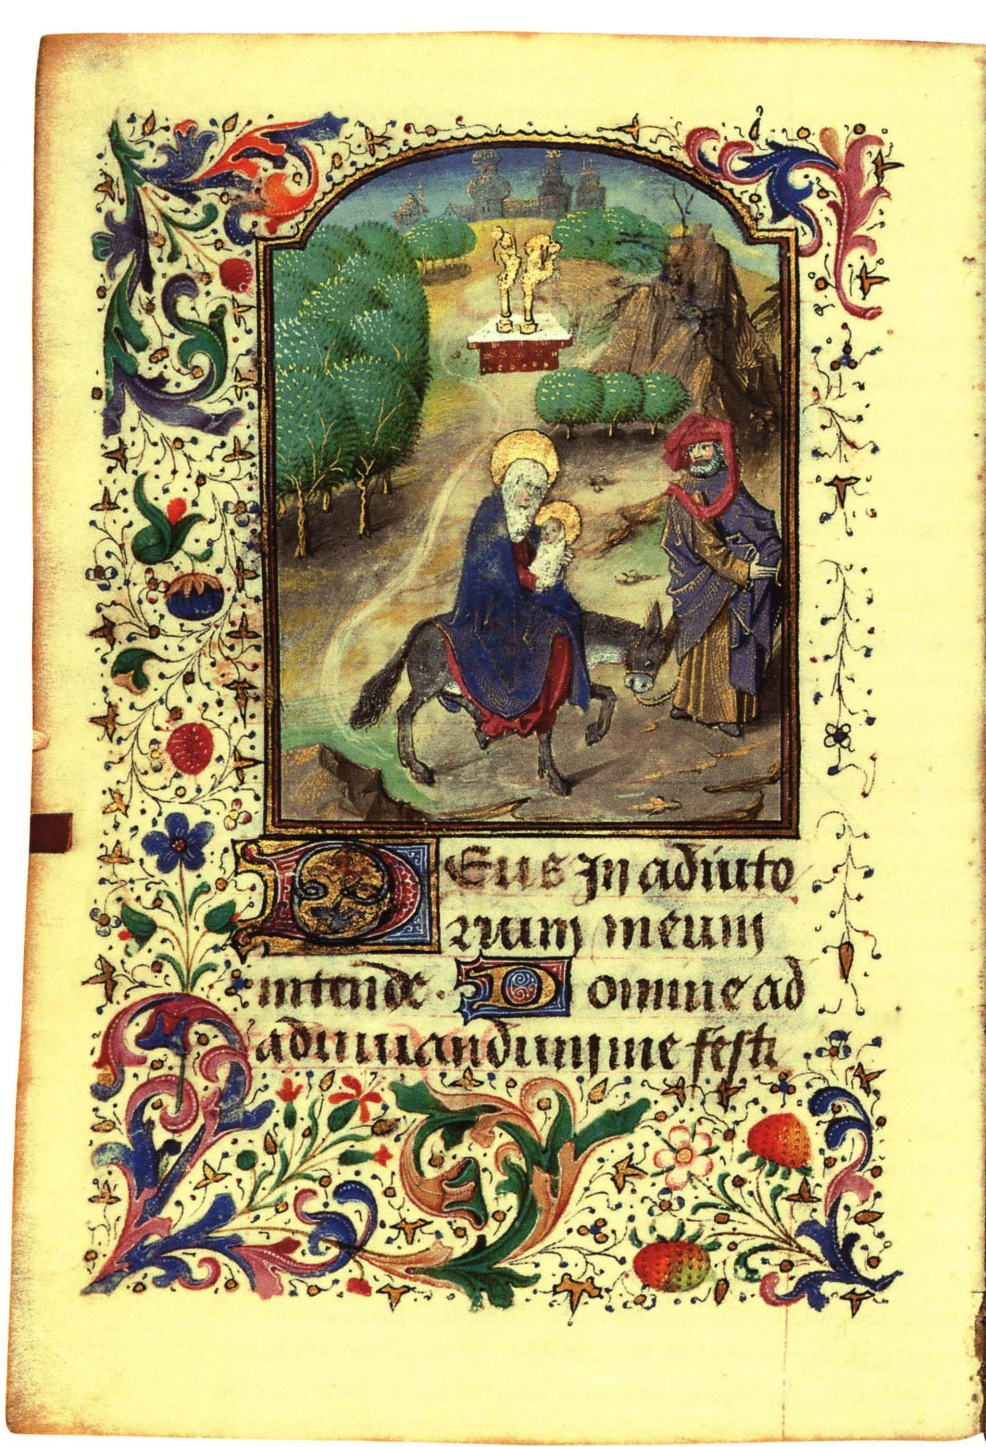 Deus In adiuto
rium meum
intende. Domine ad
adiuuandum me festi